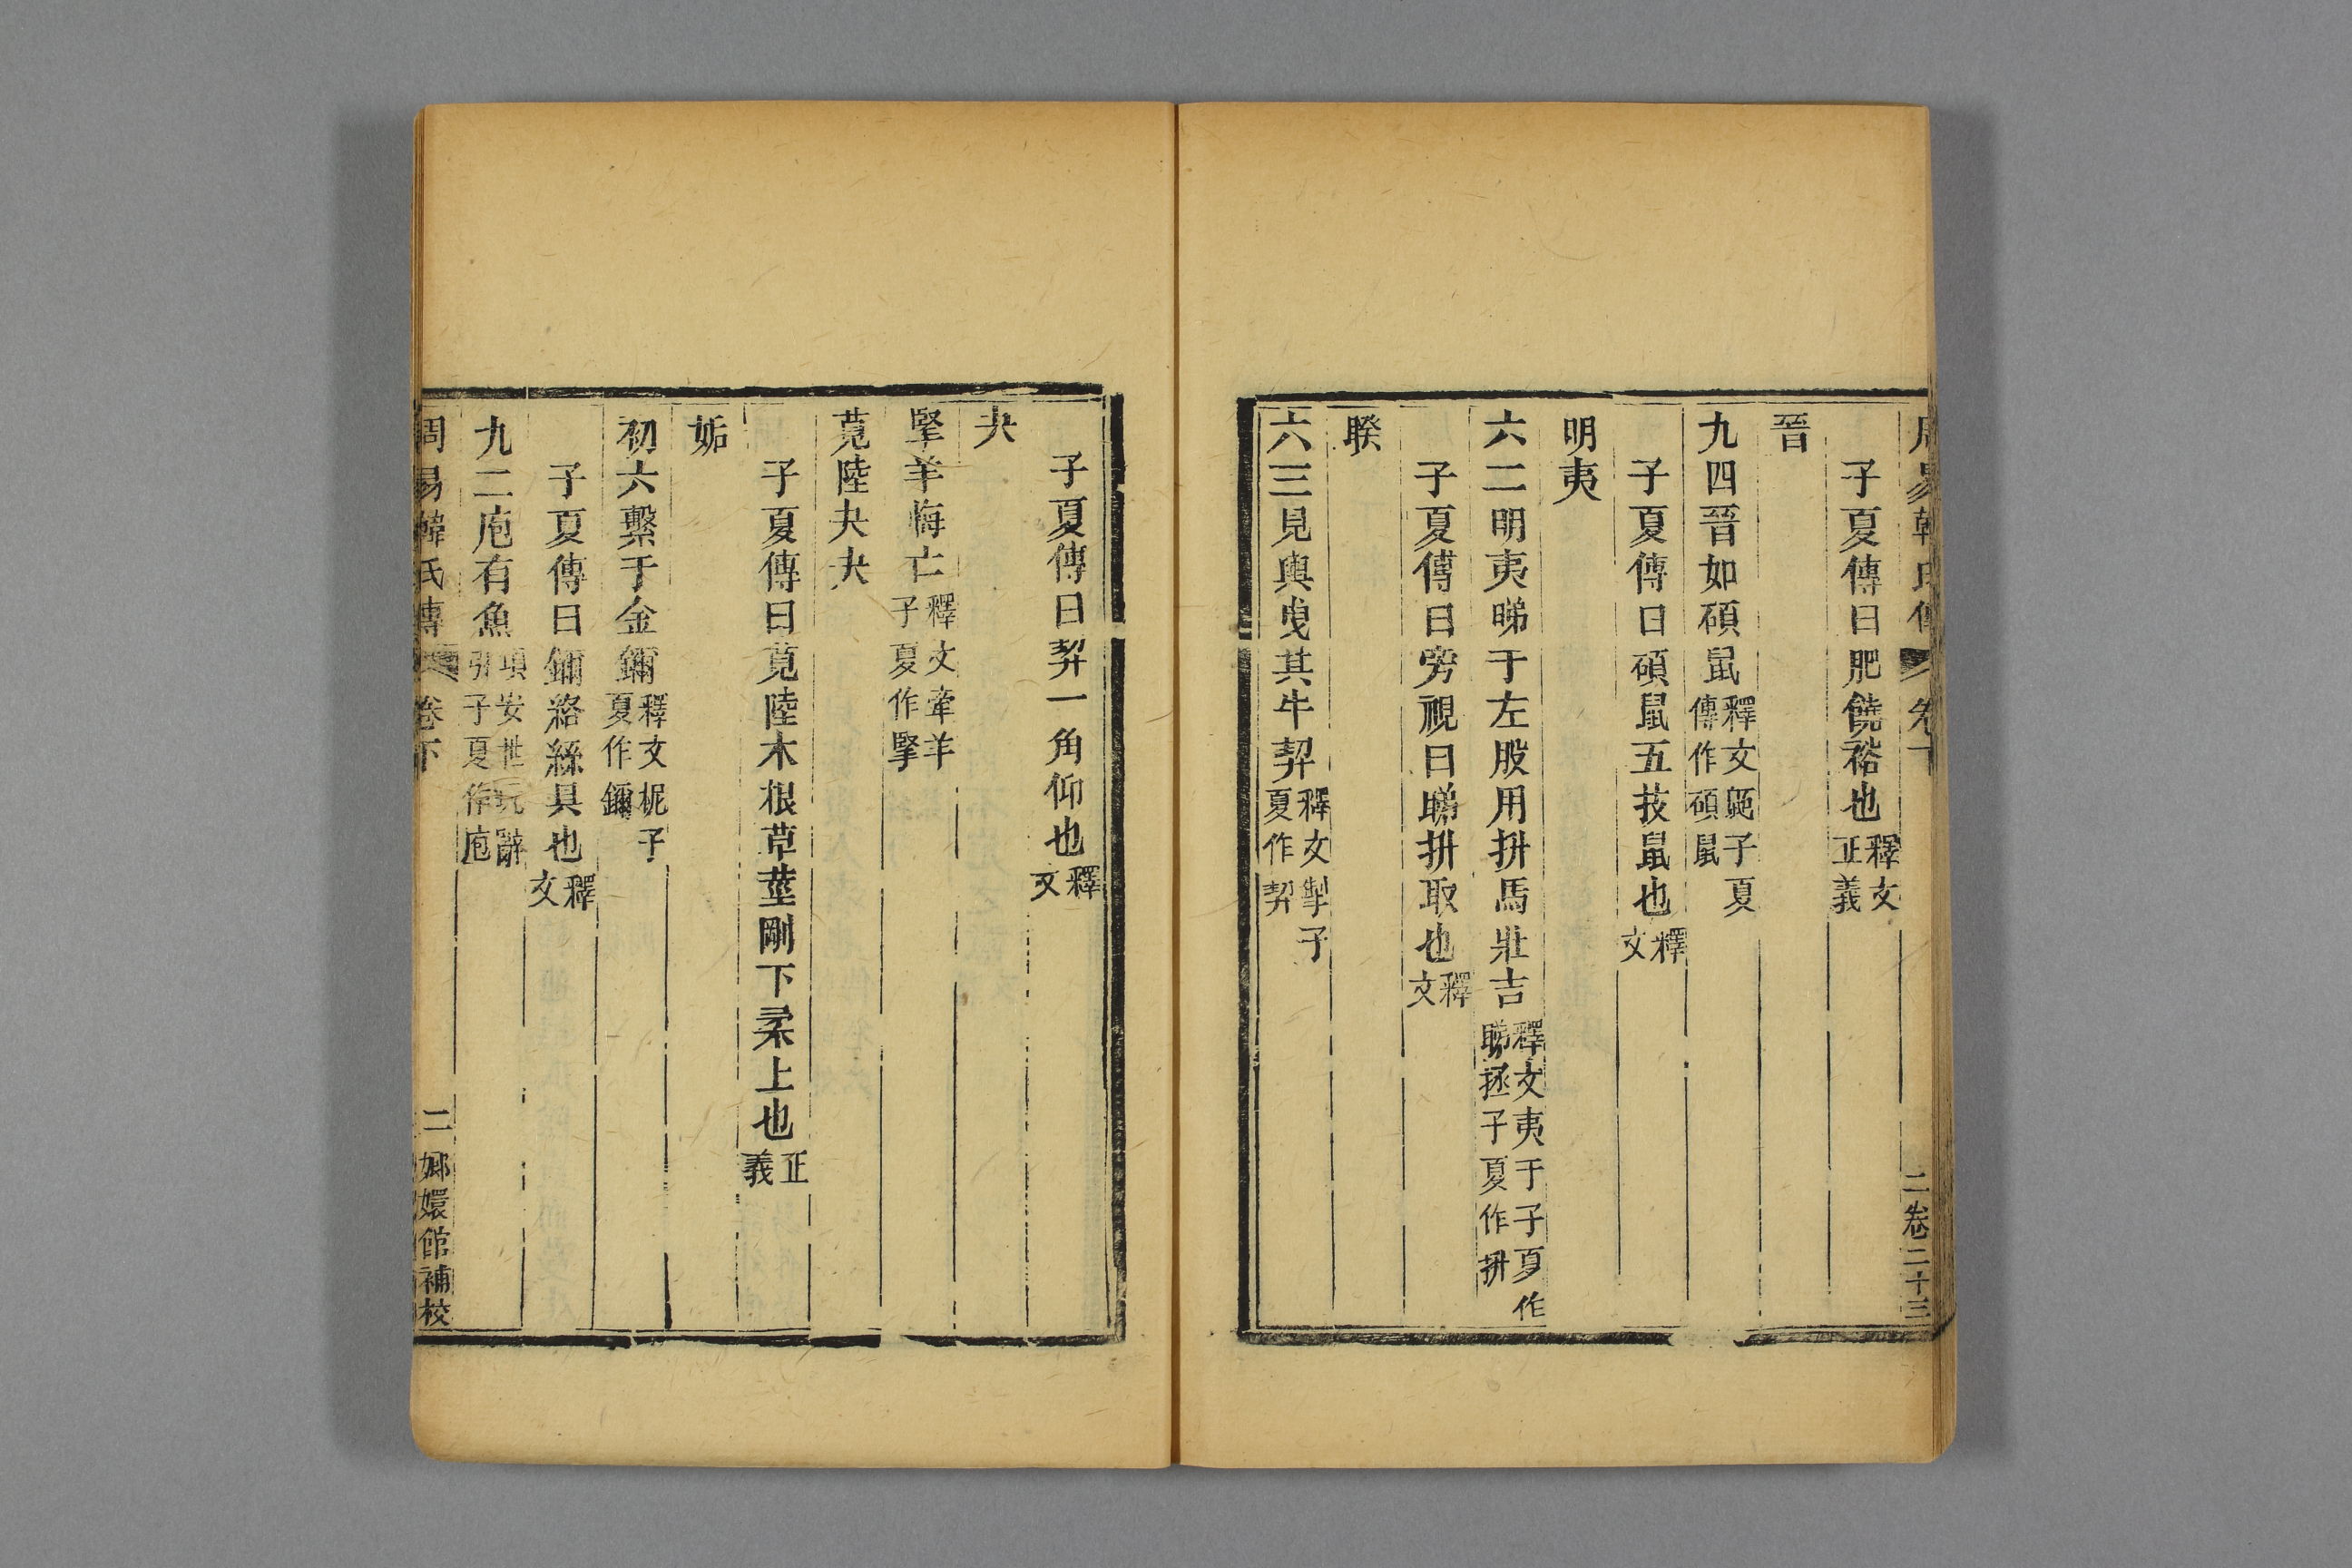 子夏傳曰肥饒裕也釋文正義
晉
九四晉如碩鼠釋文鼫子夏傳作碩鼠
子夏傳曰碩鼠五技鼠也釋文
明夷
六二明夷睇于左股用拼馬壯吉釋文夷于子夏作睇拯子夏作拼
子夏傳曰旁視曰睇拼取也釋文
睽
六三見輿曳其牛觢釋文掣子夏作觢
二卷二十三
子夏傳曰觢一角仰也釋文
夬
掔羊悔亡釋文牽羊子夏作掔
莧陸夬夬
子夏傳曰莧陸木根草莖剛下柔上也正義
姤
初六繫于金鑈釋文柅子夏作鑈
子夏傳曰鑈絡絲具也釋文
九二庖有魚項安世玩辭引子夏作庖
周易韓氏傳 卷下 二 嫏嬛館補校